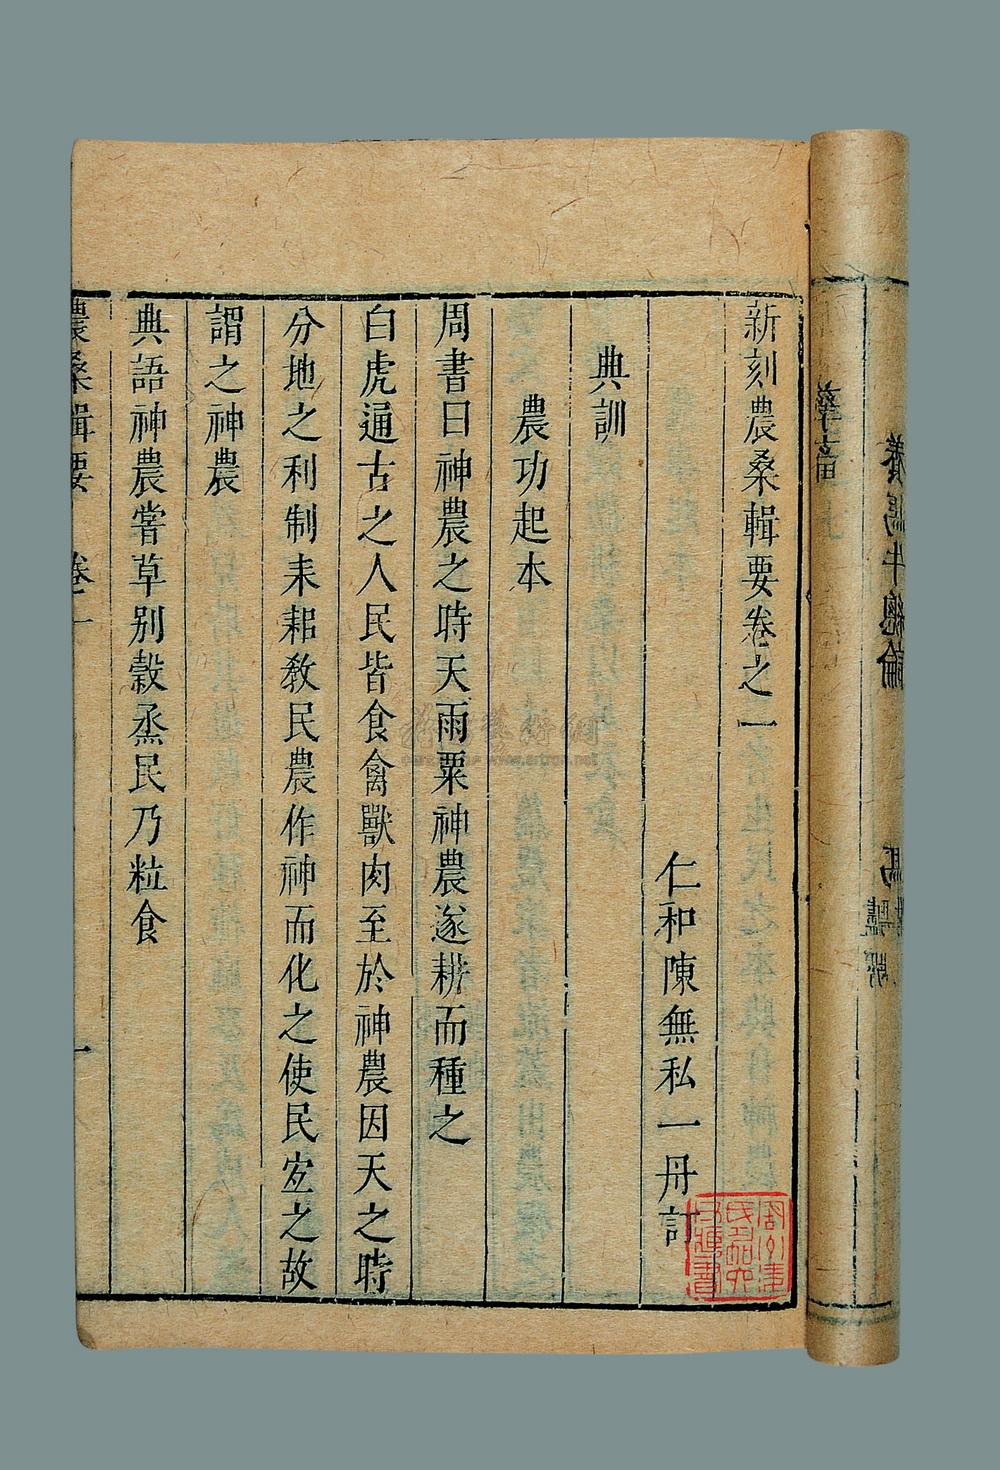 新刻農桑輯要卷之一
仁和陳無私一冊訂
典訓
農功起本
周書曰神農之時天雨粟神農遂耕而種之
白虎通古之人民皆食禽獸肉至於神農因天之時
分地之利制耒耜教民農作神而化之使民宐之故
謂之神農
典語神農嘗草别穀烝民乃粒食
農桑輯要 卷一
一